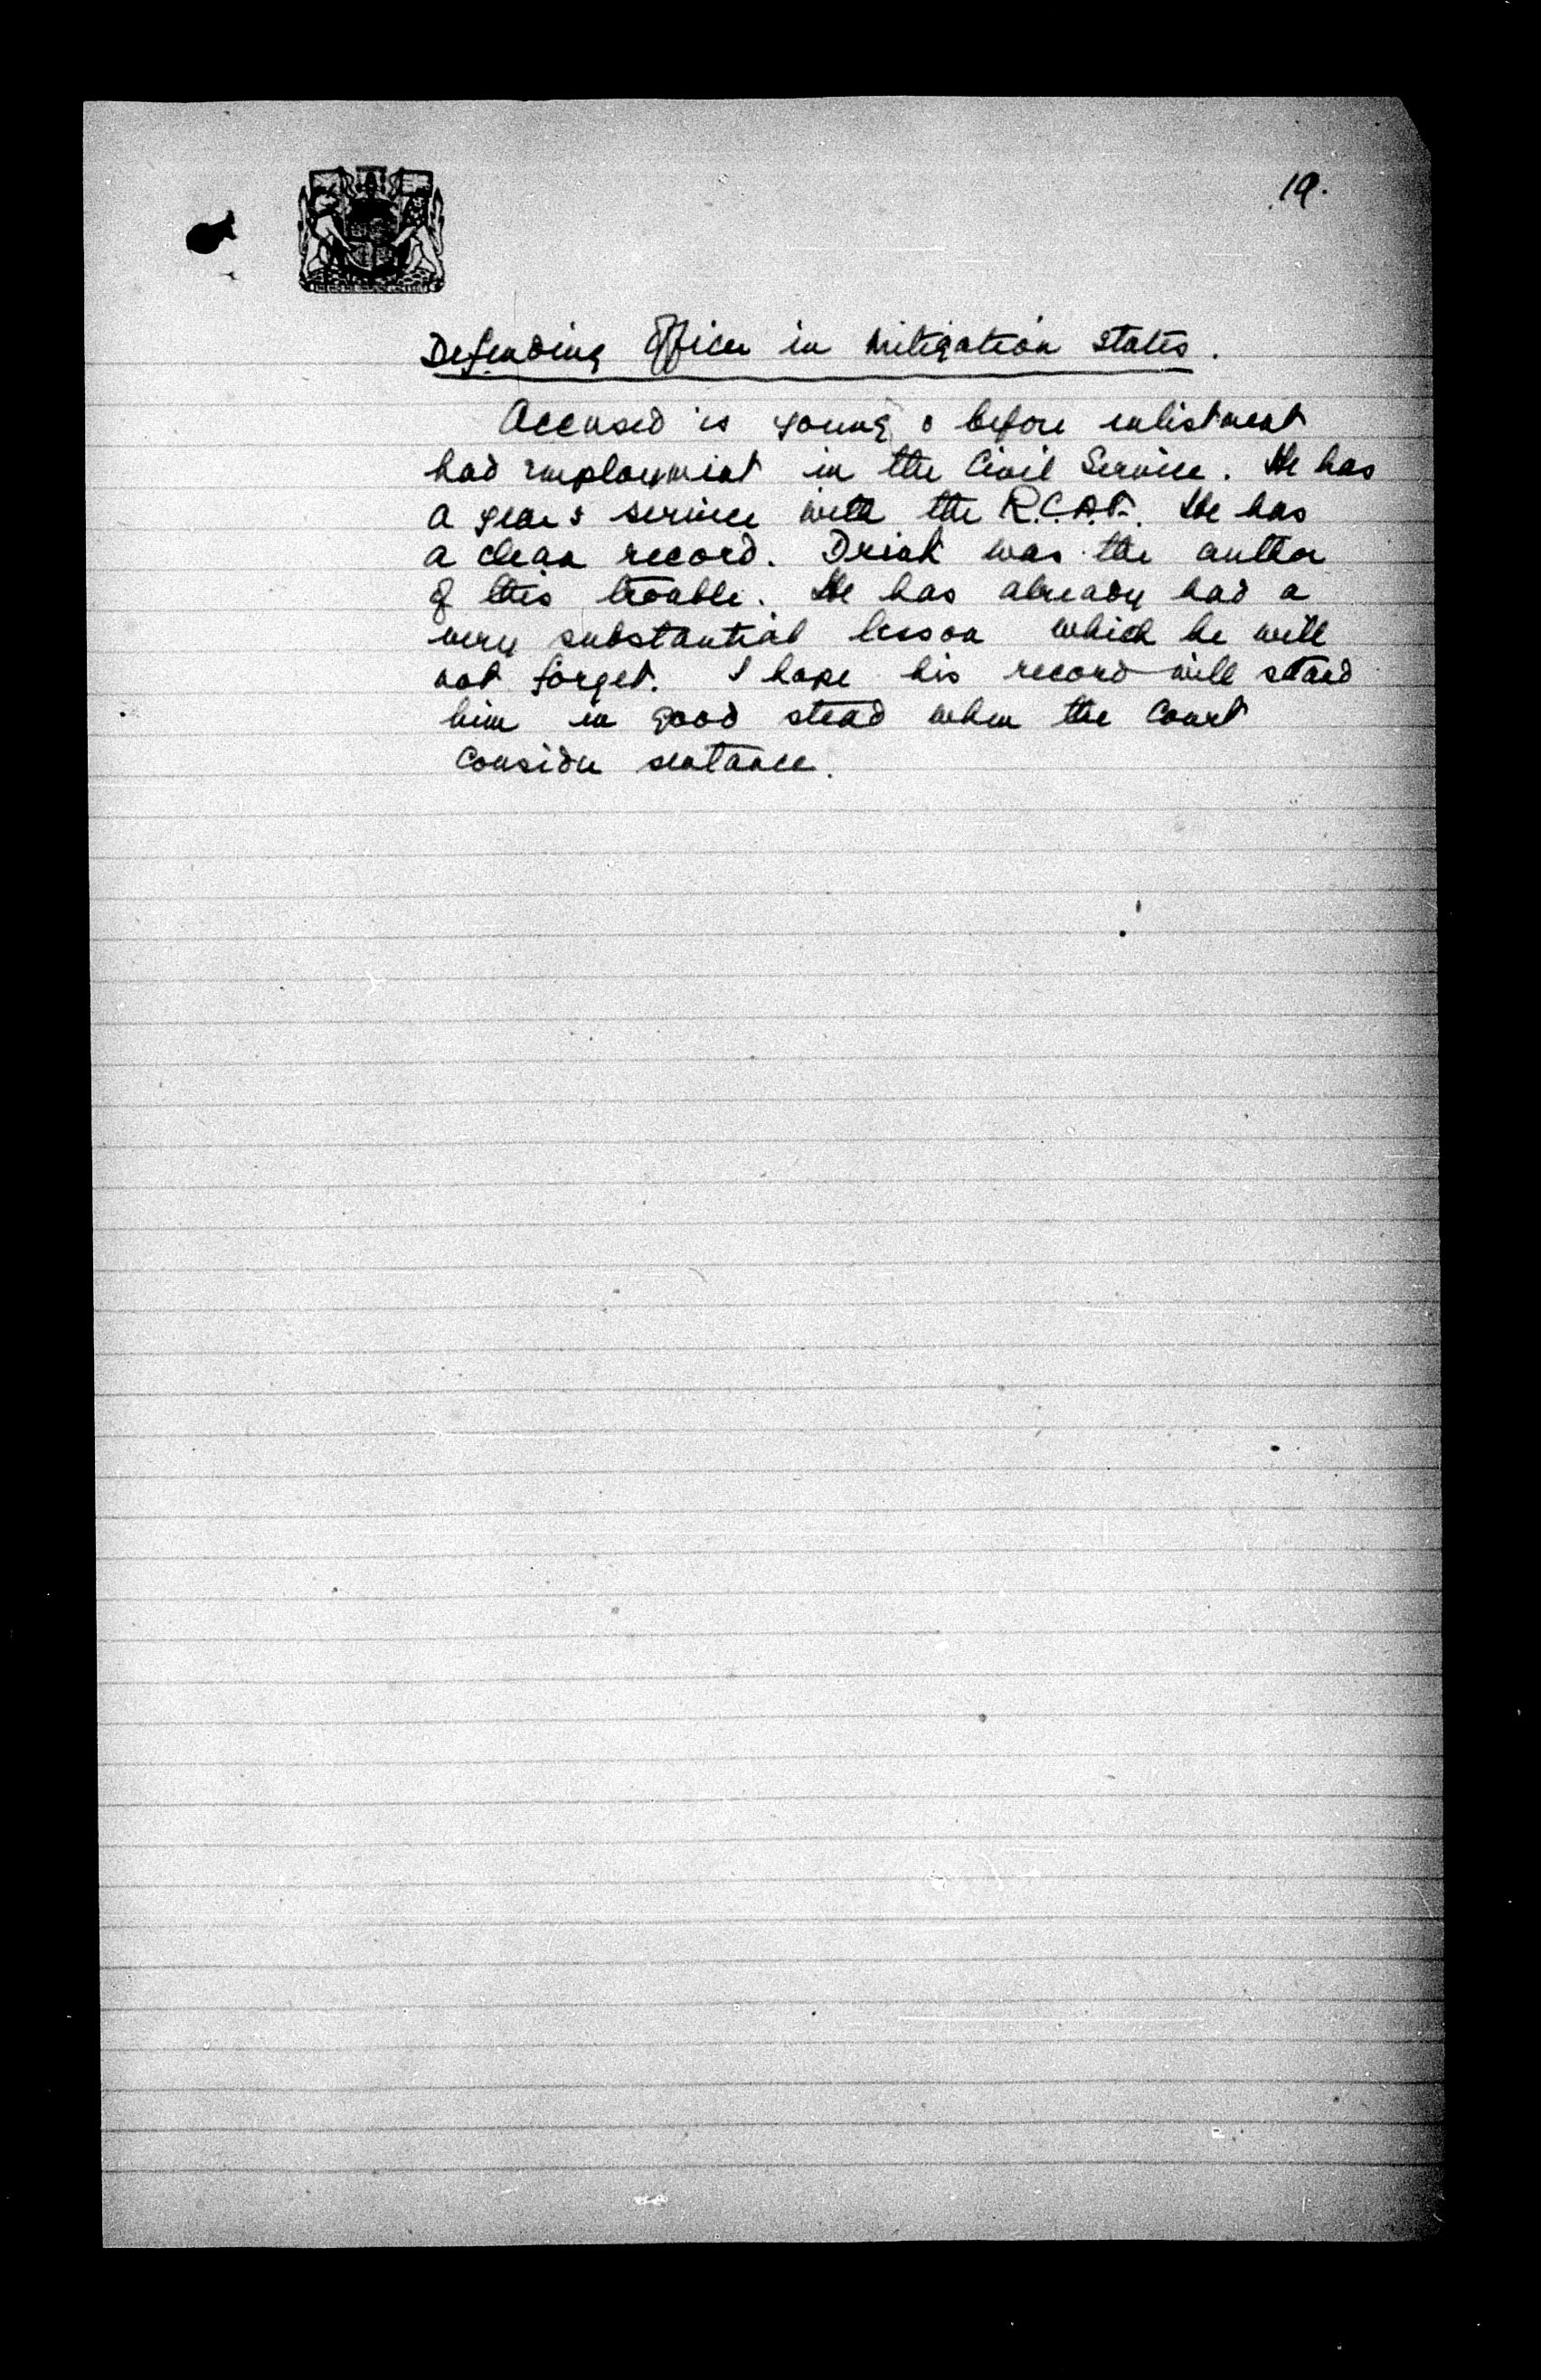 19.
Defending Officer in mitigation states.
Accused is young & before enlistment
had employment in the Civil Service. He has
a year's service with the R.C.A.F. He has
a clean record. Drink was the author
of this trouble. He has already had a
very substantial lesson which he will
not forget. I hope his record will stand
him in good stead when the Court
consider sentance.